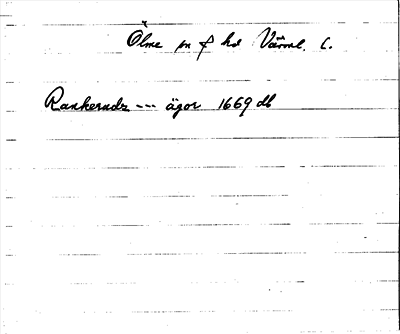 Ölme sn o hd Värml. l.
Rankerudz --- ägor 1669 db